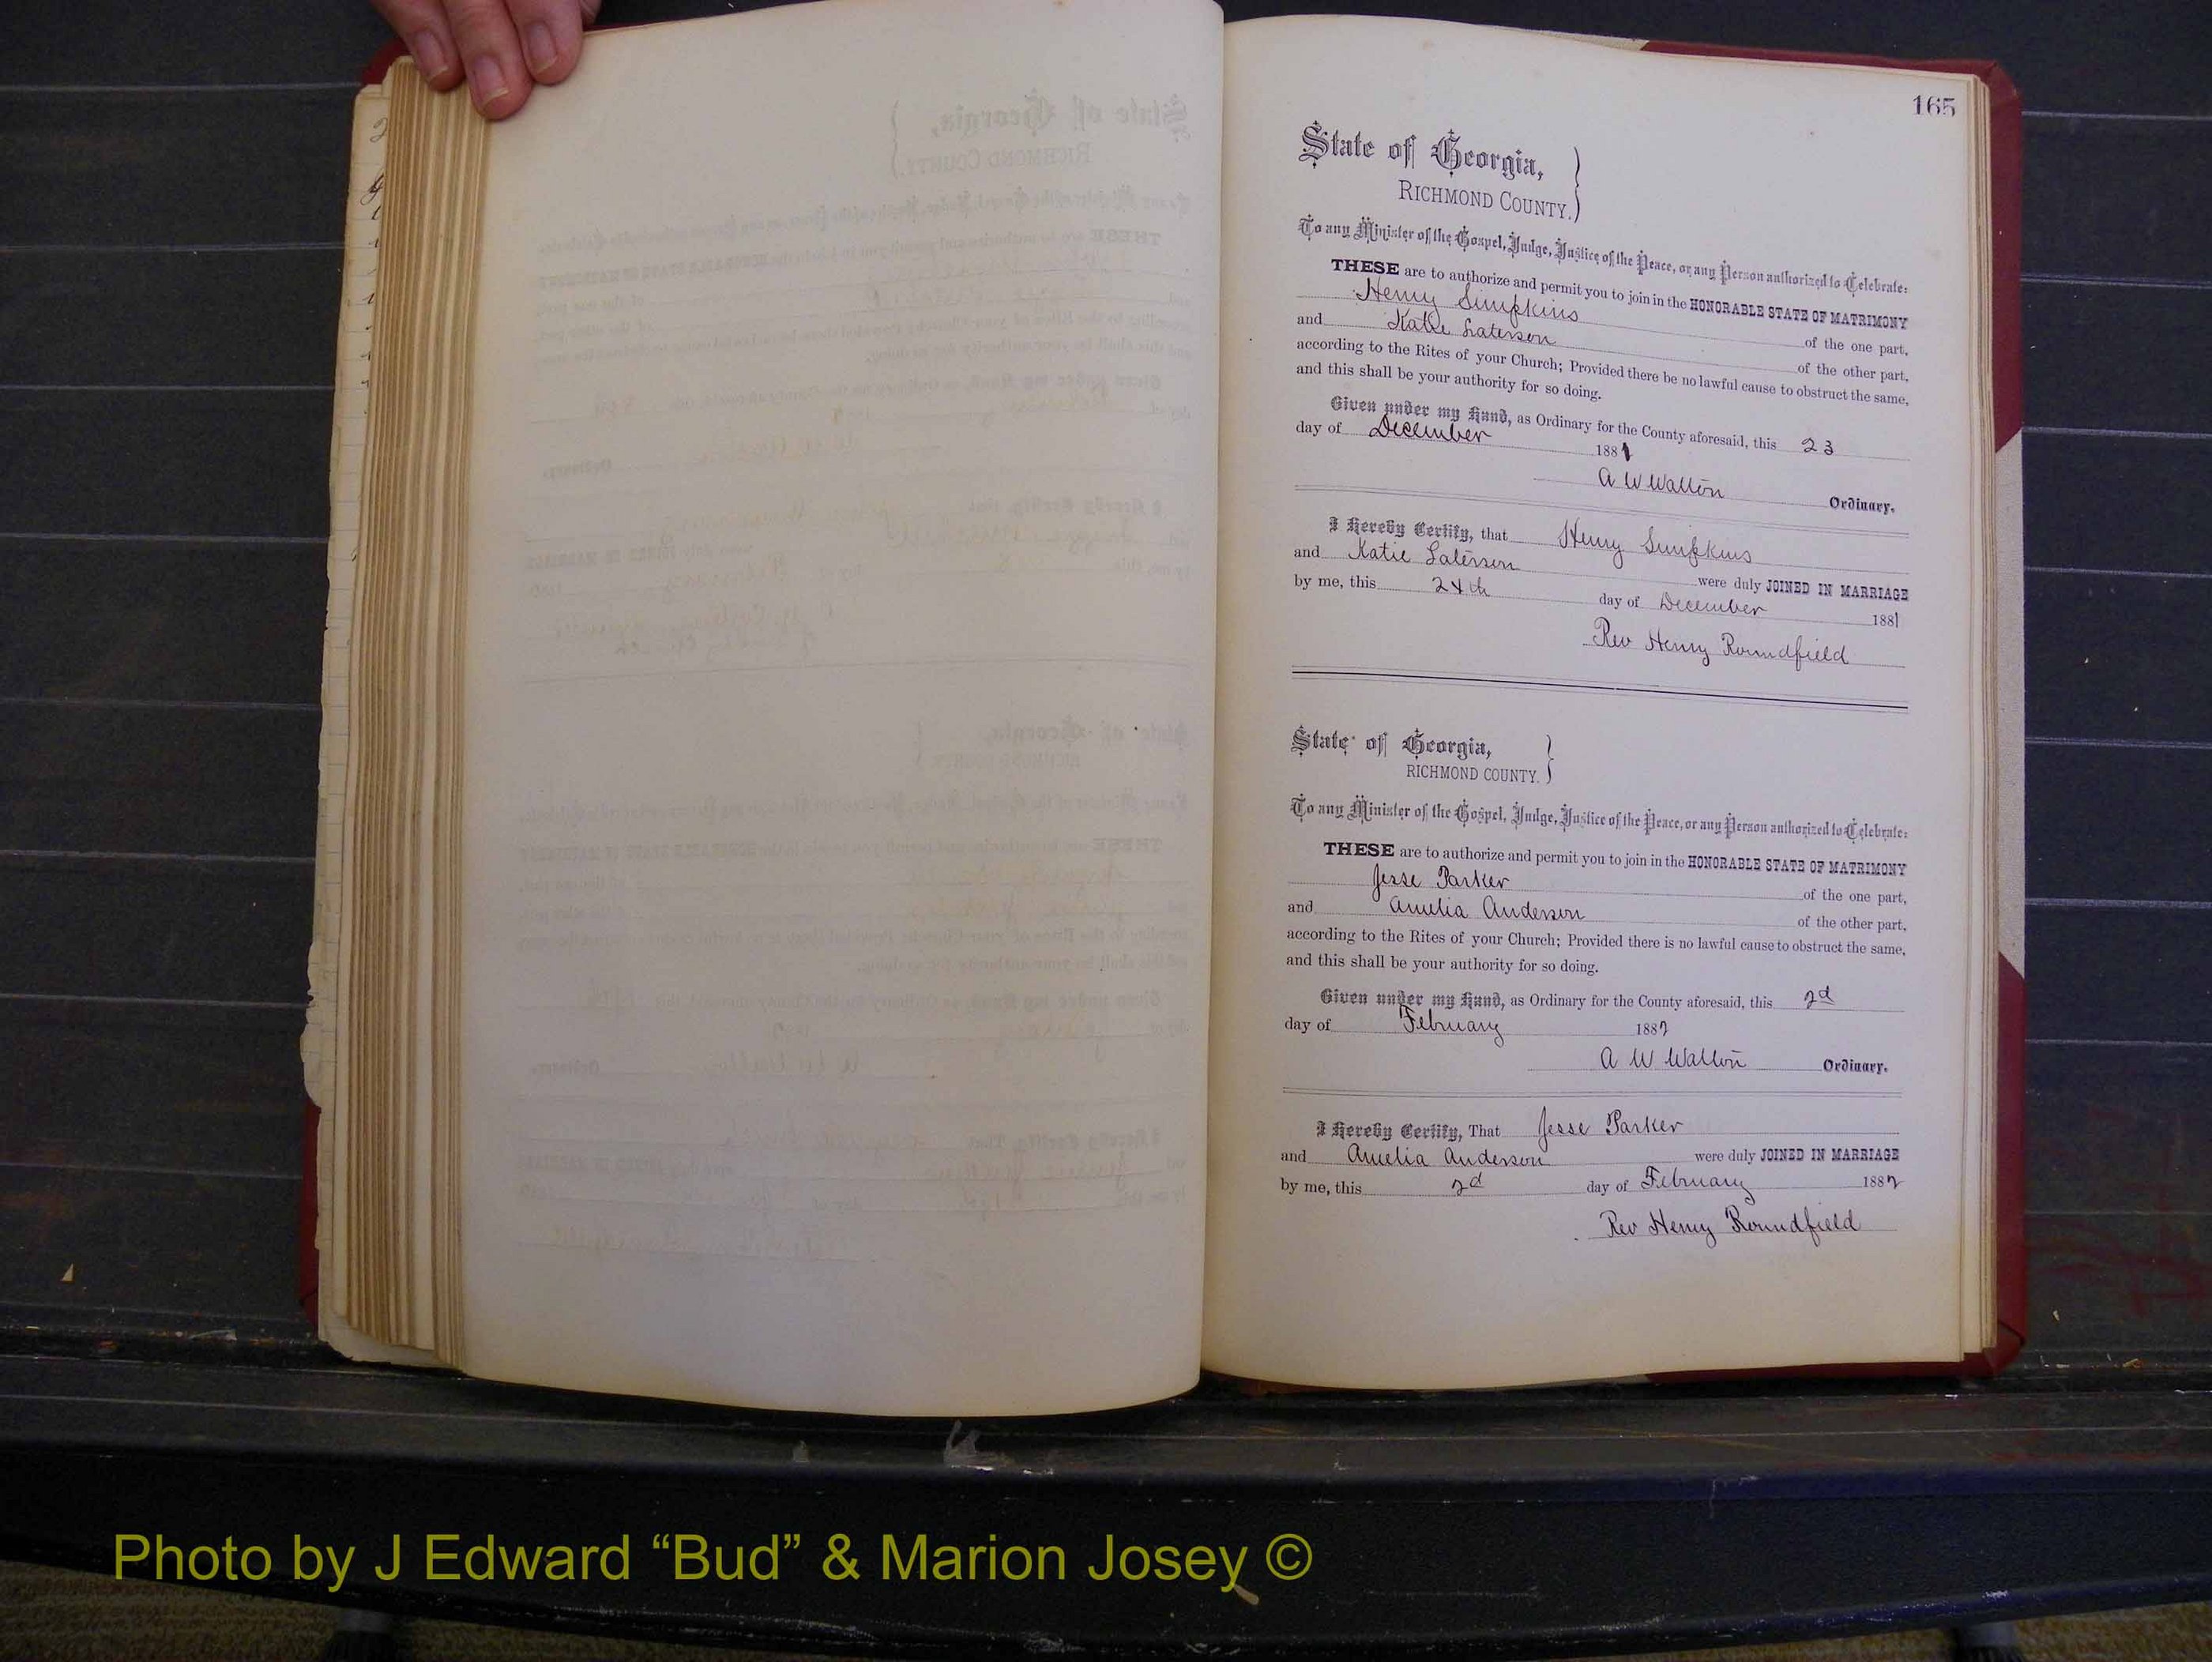 165
State of Georgia,
RICHMOND COUNTY.
To any Minister of the Gospel, Judge, Justice of the Peace, or any Person authorized to Celebrate:
THESE are to authorize and permit you to join in the HONORABLE STATE OF MATRIMONY
Henry Simpkins of the one part,
and Katie Laterson of the other part,
according to the Rites of your Church; Provided there be no lawful cause to obstruct the same,
and this shall be your authority for so doing.
Given under my Hand, as Ordinary for the County aforesaid, this 23
day of December 1881
A W Walton Ordinary.
I Hereby Certify, that Henry Simpkins
and Katie Laterson were duly JOINED IN MARRIAGE
by me, this 24th day of December 1881
Rev Henry Roundfield
State of Georgia,
RICHMOND COUNTY.
To any Minister of the Gospel, Judge, Justice of the Peace, or any Person authorized to Celebrate:
THESE are to authorize and permit you to join in the HONORABLE STATE OF MATRIMONY
Jesse Parker of the one part,
and Amelia Anderson of the other part,
according to the Rites of your Church; Provided there is no lawful cause to obstruct the same,
and this shall be your authority for so doing.
Given under my Hand, as Ordinary for the County aforesaid, this 2d
day of February 1882
A W Walton Ordinary.
I Hereby Certify, That Jesse Parker
and Amelia Anderson were duly JOINED IN MARRIAGE
by me, this 2d day of February 1882
Rev Henry Roundfield
Photo by J Edward “Bud” & Marion Josey ©